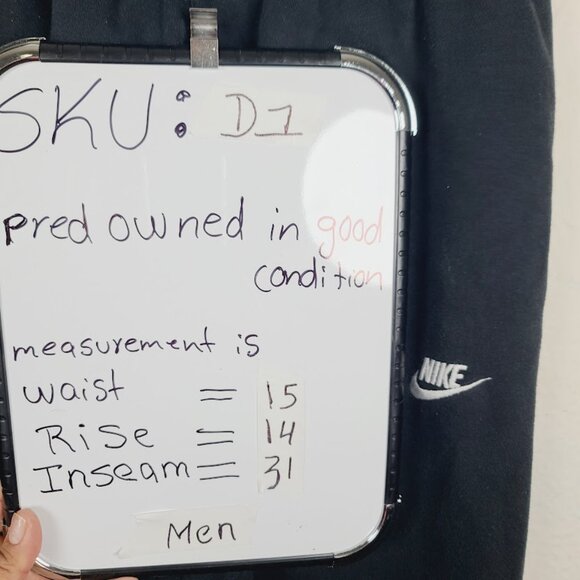 SKU: D1
pred owned in good
condition
NIKE
measurement is
waist = 15
Rise = 14
Inseam = 31
Men